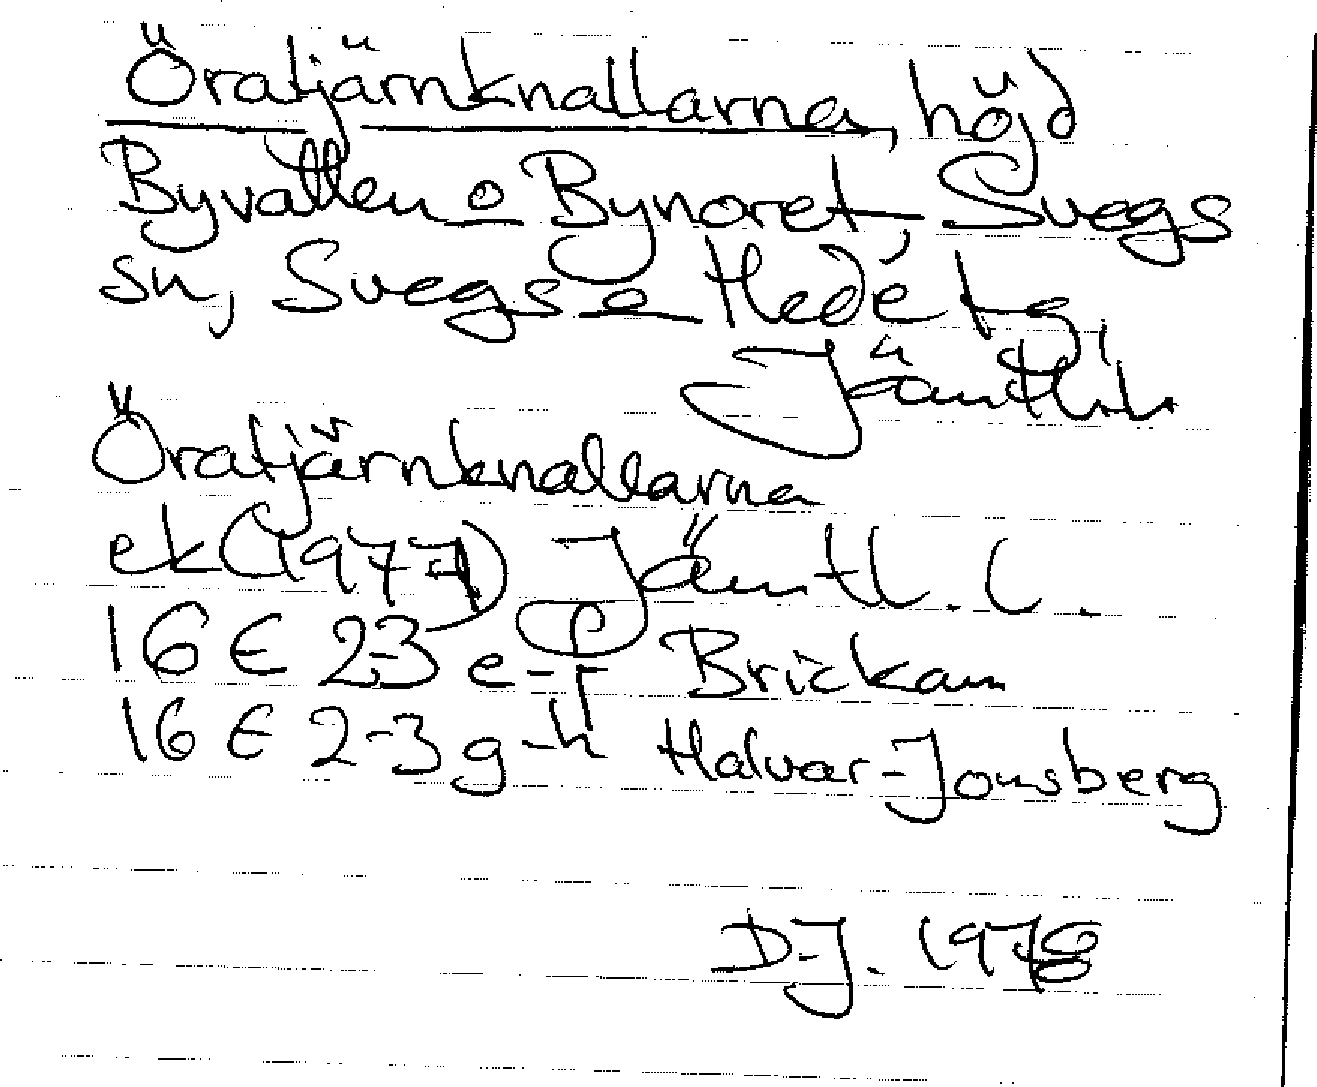 Öratjärnknallarna, höjd
Byvallen o Bynoret, Svegs
sn, Svegs o Hede tg,
Jämtl.l.
Öratjärnknallarna
ek (1977) Jämtl. l.
16 E 2-3 e-f Brickan
16 E 2-3 g-h Halvar-Jonsberg
D-J. 1978